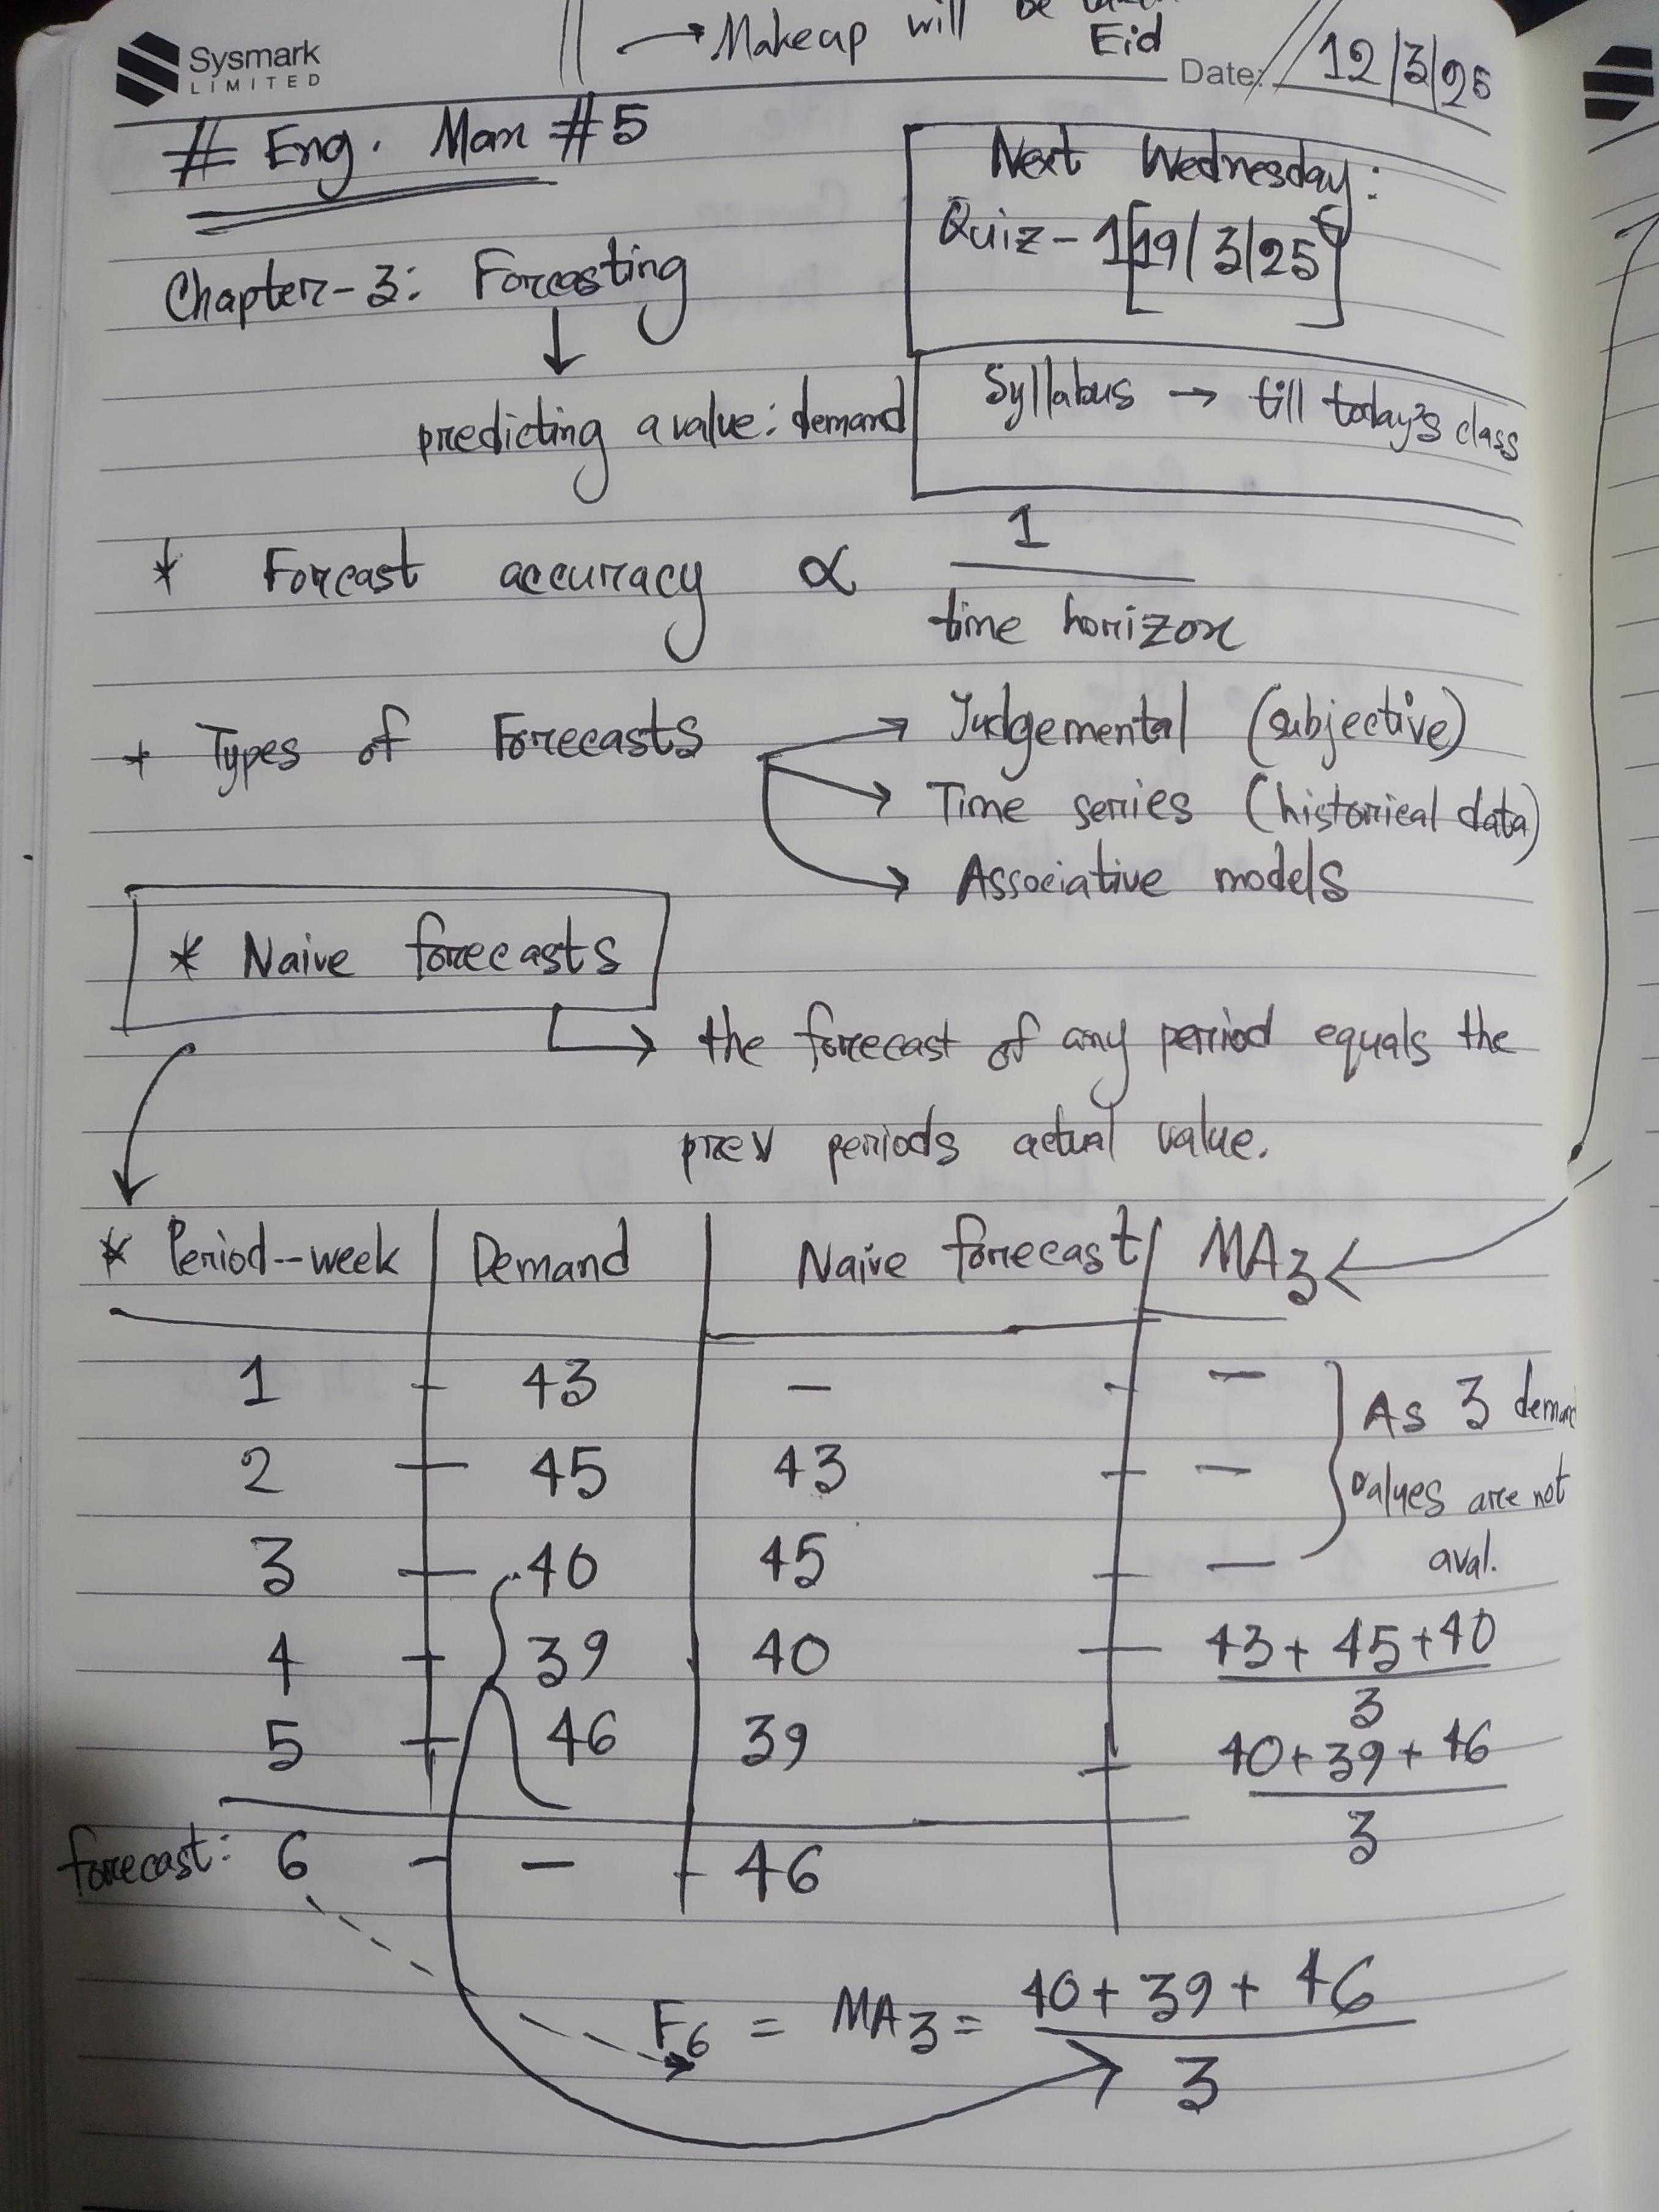 Sysmark
LIMITED
→ Makeup will be
Eid
Date: 12/3/25
# Eng. Man #5
Next Wednesday:
Quiz-1 [19/3/25]
Syllabus → till today's class
Chapter-3: Forcasting
↓
predicting a value: demand
* Forcast accuracy ∝ 1
time horizon
* Types of Forecasts → Judgemental (subjective)
→ Time series (historical data)
→ Associative models
* Naive forecasts
→ the forecast of any period equals the
prev periods actual value.
* Period-week | Demand | Naive forecast | MA3
1 43 - -
2 45 43 -
3 40 45 -
As 3 demand
values are not
aval.
4 39 40 43 + 45 + 40
3
5 46 39 40 + 39 + 46
3
forecast: 6 - - 46
F6 = MA3 = 40 + 39 + 46
3